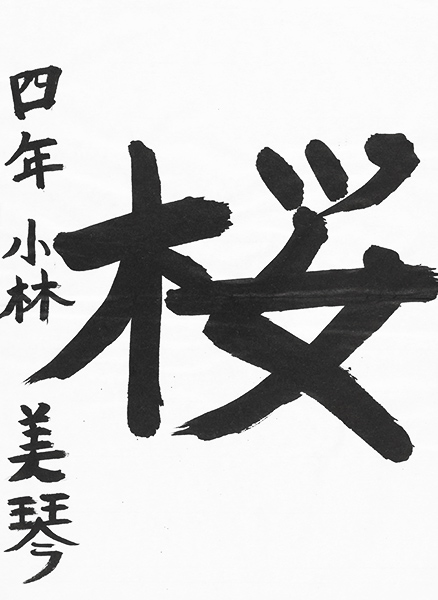 桜
四年 小林 美琴